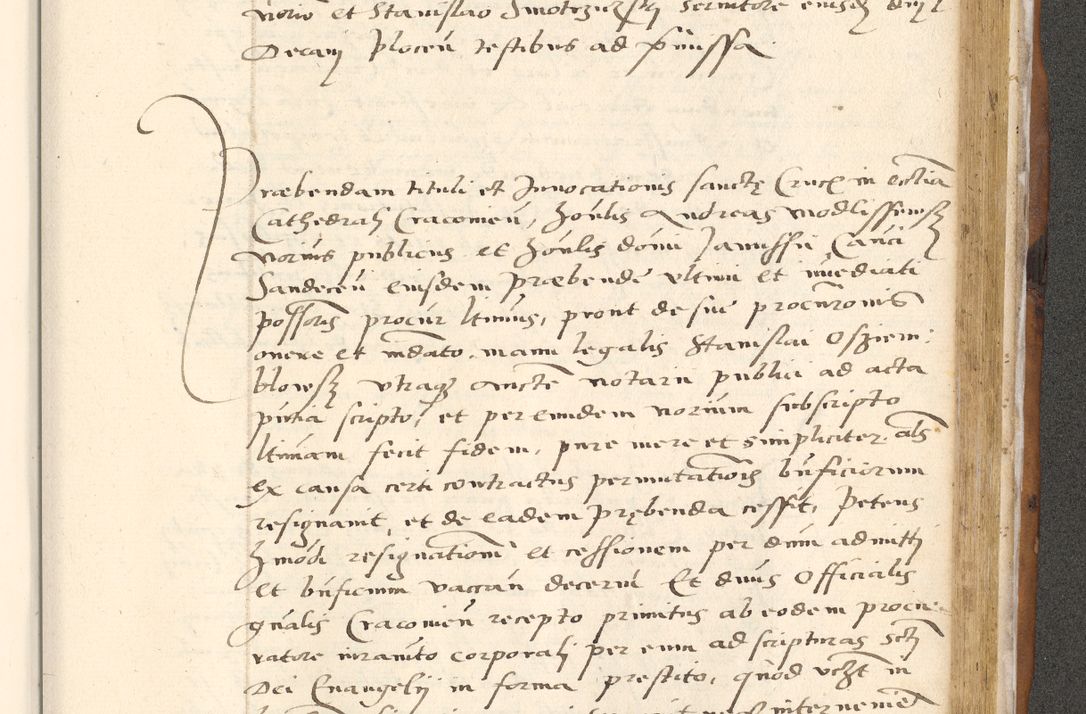 norio et Stanislao Smotrziczski servitore eiusdem dni
Decani Plocen̄ testibus ad p̄missa
Præbendam tituli et Innocationis sanctę Crucis in ecclīa
Cathedrali Cracovien̄, Honlis Andreas Modlissewsky
Norius publicus et Honlis domi Janussii Canci
Sandecen̄ eiusdem Præbendę ultimi et im̄ediati
possoris procur ltimus, prout de sue procuronis
onere et mdato manu legalis Stanislai Ospiem:
blowsky utraque aucte notarii publici ad acta
pntia scripto, et per eundem norium subscripto
ltimam fecit fidem, pure mere et simpliciter als
ex causa certi contractus permutationis bnficiorum
resignavit, et de eadem Prębenda cessit, Petens
hmodi resignationem et cessionem per dnm admitti
et bnficium vaccan̄ decerni Et dnus Officialis
gnalis Cracovien̄ recepto primitus ab eodem procu:
ratore iuramto corporali per eum ad scripturas scti
Dei Evangelii in forma prestito, quod
intervenien̄